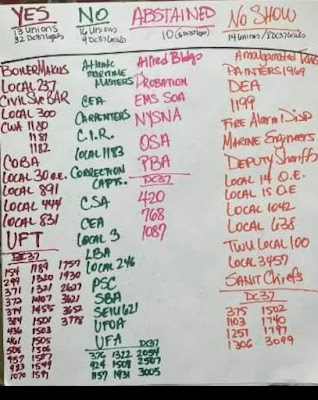 YES
13 UNIONS
32 DC37 Locals
BOILERMAKERS
LOCAL 237
Civil Ser BAR
LOCAL 300
CWA 1180
1181
1182
COBA
LOCAL 30 o.e.
LOCAL 891
LOCAL 444
LOCAL 831
UFT
DC37
154 1189 1757
299 1320 1930
371 1321 2627
372 1407 3621
374 1455 3652
384 1501 3778
436 1503
461 1505
508 1506
957 1587
983 1549
1070 1597
NO
16 UNIONS
9 DC37 Locals
Atlantic
maritime
MASTERS
CEA
CARPENTERS
C.I.R.
LOCAL 1183
CORRECTION
CAPTS.
CSA
CEA
LOCAL 3
LBA
LOCAL 246
PSC
SBA
SEIU 621
UFOA
UFA
DC37
376 1322 2054
924 1508 2507
1157 1931 3005
ABSTAINED
10
Allied Bldgs
PROBATION
EMS SOA
NYSNA
OSA
PBA
DC37
420
768
1087
NO SHOW
14 UNIONS / 8 DC37 Locals
Amalgamated
PAINTERS 1969
DEA
1199
Fire Alarm Disp
MARINE Engineers
DEPUTY Sheriffs
LOCAL 14 O.E.
LOCAL 15 O.E
LOCAL 1042
LOCAL 638
TWU LOCAL 100
LOCAL 3457
SANIT Chiefs
DC37
375 1502
1103 1740
1251 1797
1306 3099